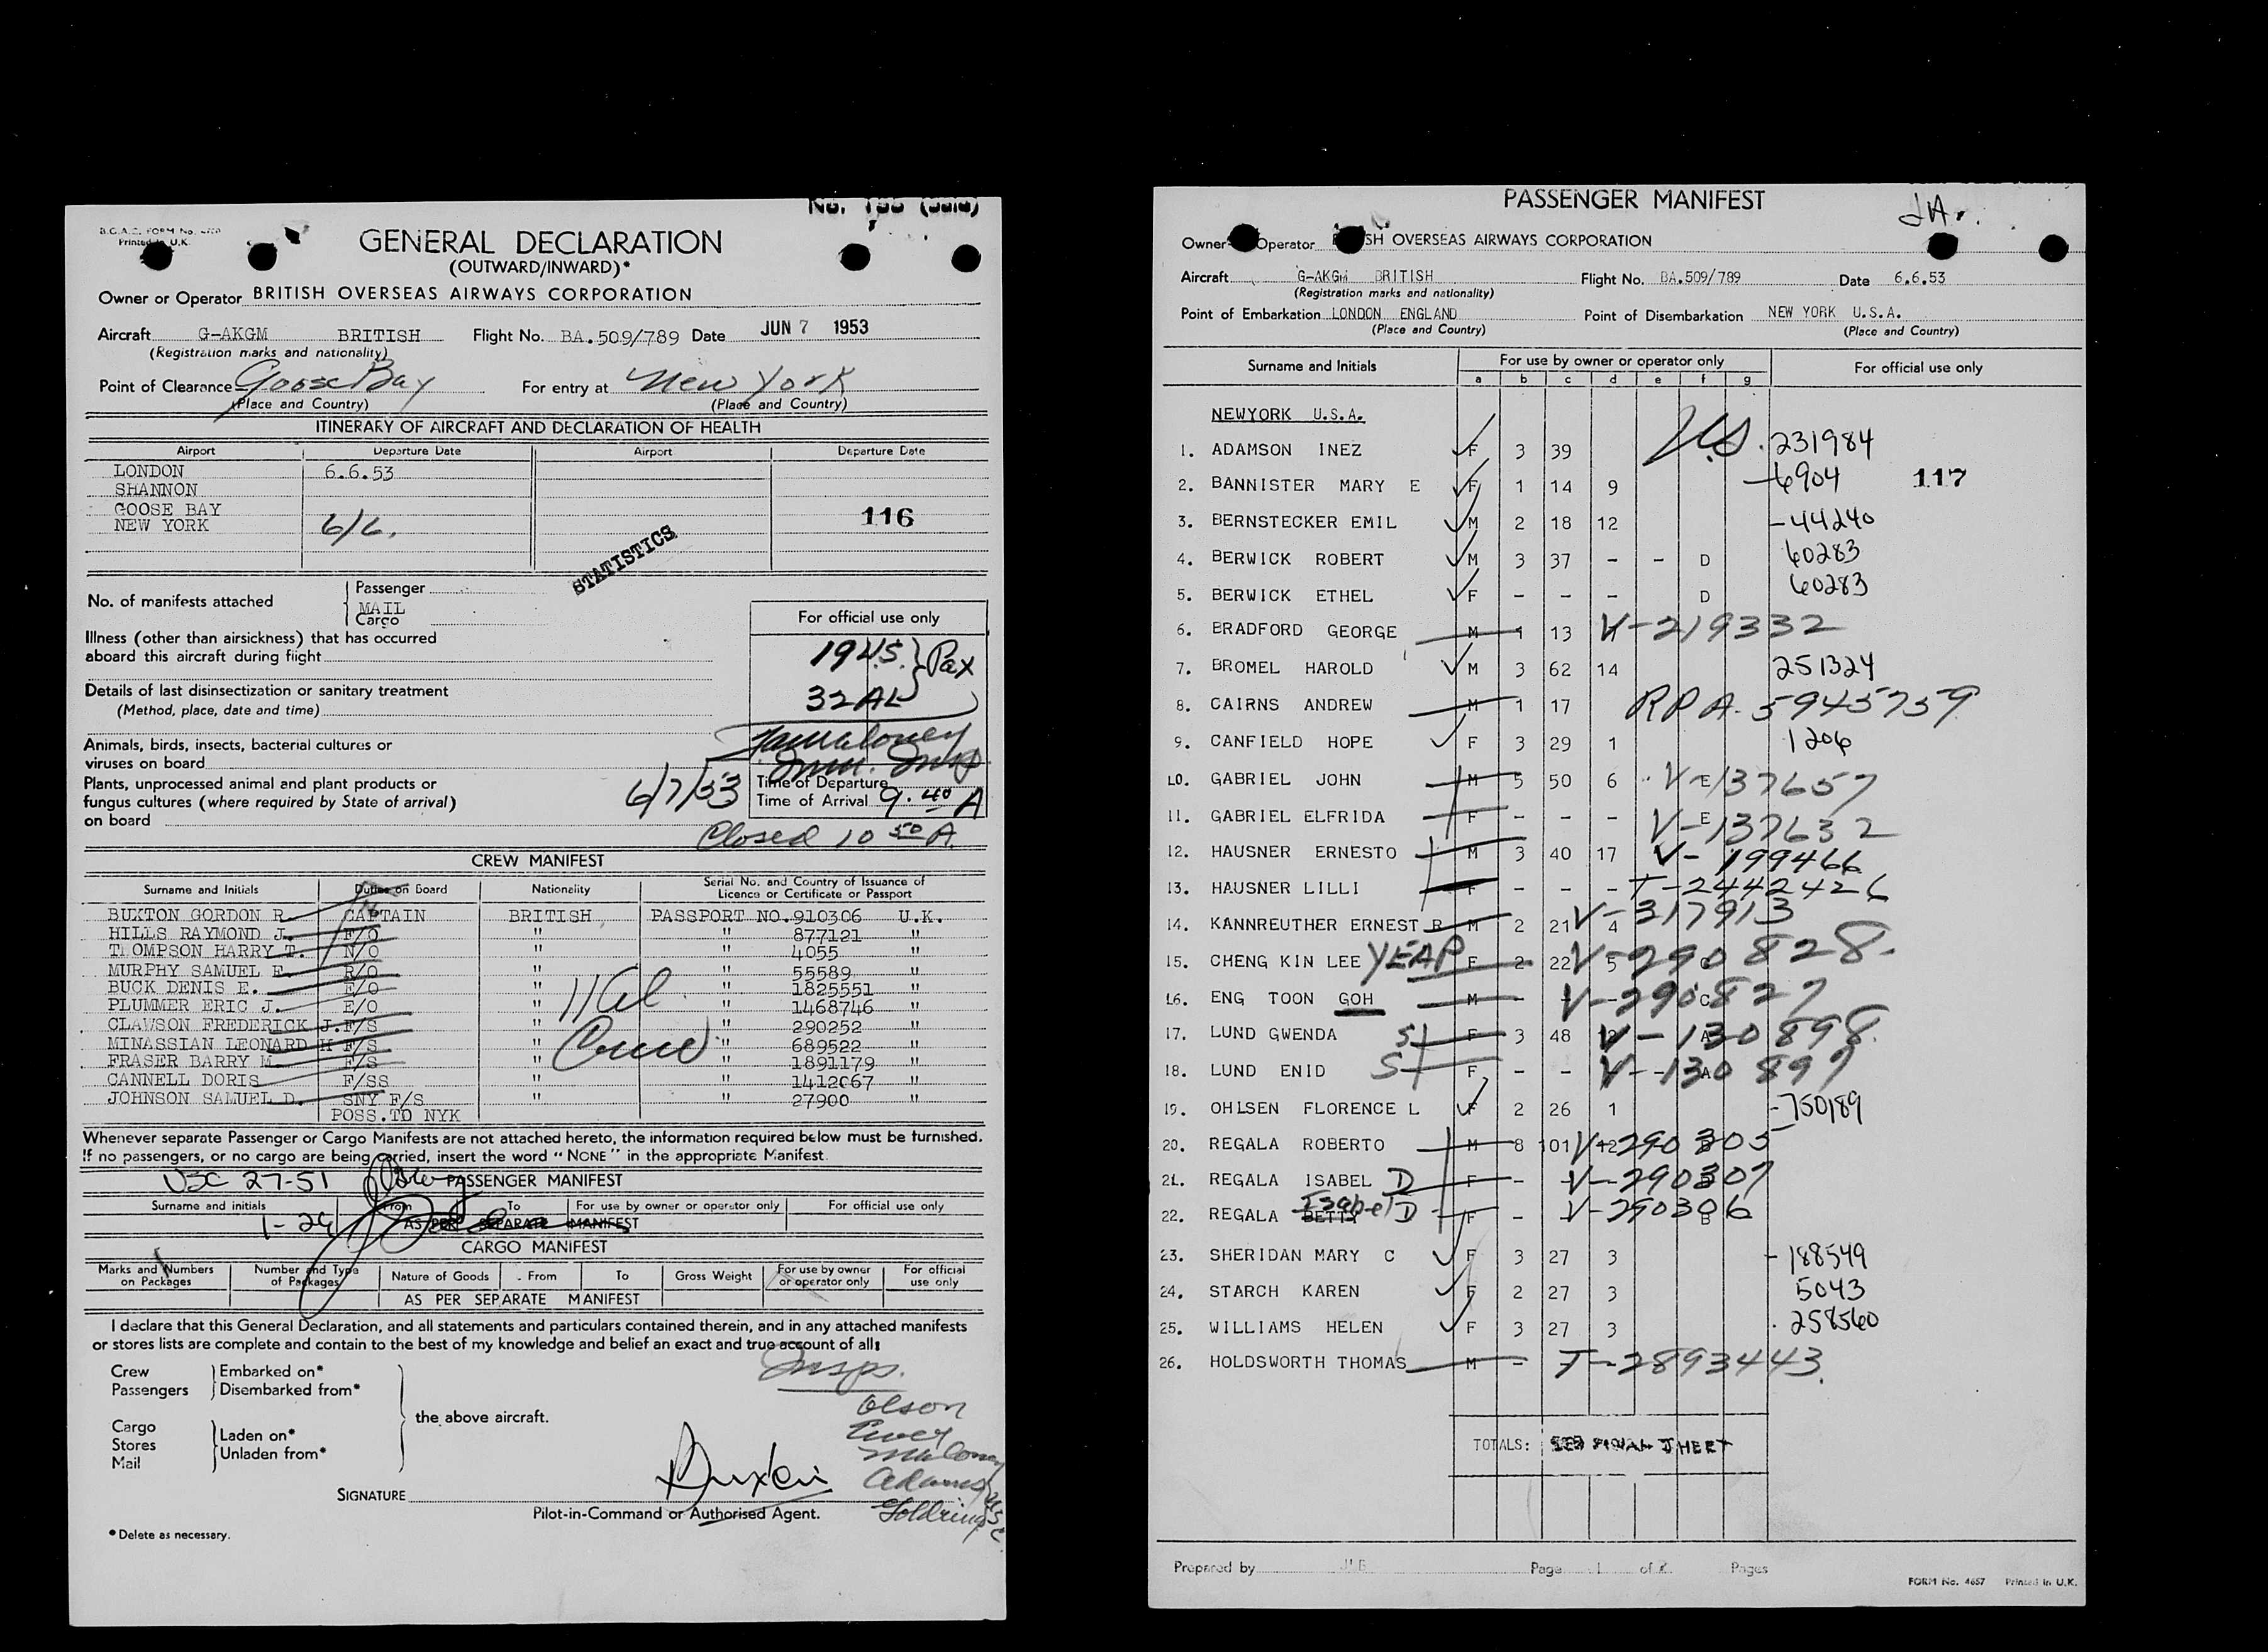 GENERAL DECLARATION
(OUTWARD/INWARD)*
Printed in U.K.
Owner or Operator BRITISH OVERSEAS AIRWAYS CORPORATION
Aircraft G-AKGM BRITISH Flight No. BA.509/789 Date JUN 7 1953
(Registration marks and nationality)
Point of Clearance Goose Bay For entry at New York
(Place and Country) (Place and Country)
ITINERARY OF AIRCRAFT AND DECLARATION OF HEALTH
Airport Departure Date Airport Departure Date
LONDON 6.6.53
SHANNON
GOOSE BAY 116
NEW YORK 6/6.
STATISTICS
No. of manifests attached
Passenger
MAIL
Cargo
For official use only
Illness (other than airsickness) that has occurred
aboard this aircraft during flight
19 U.S. } Pax
32 AL
Details of last disinsectization or sanitary treatment
(Method, place, date and time)
Animals, birds, insects, bacterial cultures or
viruses on board
Plants, unprocessed animal and plant products or
fungus cultures (where required by State of arrival)
on board
6/7/53
Time of Departure
Time of Arrival 9.40 A
Closed 10 50 A.
CREW MANIFEST
Surname and Initials Duties on Board Nationality Serial No. and Country of Issuance of Licence or Certificate or Passport
BUXTON GORDON R. CAPTAIN BRITISH PASSPORT NO.910306 U.K.
HILLS RAYMOND J. F/O " " 877121 "
THOMPSON HARRY T. N/O " " 4055 "
MURPHY SAMUEL E. R/O " " 55589 "
BUCK DENIS E. E/O " " 1825551 "
PLUMMER ERIC J. E/O " " 1468746 "
CLAWSON FREDERICK J. F/S " " 290252 "
MINASSIAN LEONARD H F/S " " 689522 "
FRASER BARRY M. F/S " " 1891179 "
CANNELL DORIS F/SS " " 1412067 "
JOHNSON SAMUEL D. SNY F/S " " 27900 "
POSS.TD NYK
Whenever separate Passenger or Cargo Manifests are not attached hereto, the information required below must be furnished.
If no passengers, or no cargo are being carried, insert the word "NONE" in the appropriate Manifest.
PASSENGER MANIFEST
Surname and initials From To For use by owner or operator only For official use only
AS PER SEPARATE MANIFEST
CARGO MANIFEST
Marks and Numbers on Packages Number and Type of Packages Nature of Goods From To Gross Weight For use by owner or operator only For official use only
AS PER SEPARATE MANIFEST
I declare that this General Declaration, and all statements and particulars contained therein, and in any attached manifests
or stores lists are complete and contain to the best of my knowledge and belief an exact and true account of all:
Crew Embarked on*
Passengers Disembarked from*
the above aircraft.
Cargo
Stores Laden on*
Mail Unladen from*
Insps.
Olson
Adams
Goldring
SIGNATURE Buxton
Pilot-in-Command or Authorised Agent.
* Delete as necessary.
PASSENGER MANIFEST
Owner Operator SH OVERSEAS AIRWAYS CORPORATION
Aircraft G-AKGM BRITISH Flight No. BA.509/789 Date 6.6.53
(Registration marks and nationality)
Point of Embarkation LONDON ENGLAND Point of Disembarkation NEW YORK U.S.A.
(Place and Country) (Place and Country)
Surname and Initials For use by owner or operator only For official use only
a b c d e f g
NEWYORK U.S.A.
1. ADAMSON INEZ F 3 39 U.S. 231984
2. BANNISTER MARY E F 1 14 9 6904 117
3. BERNSTECKER EMIL M 2 18 12 -44240
4. BERWICK ROBERT M 3 37 - - D 60283
5. BERWICK ETHEL F - - - D 60283
6. BRADFORD GEORGE M 1 13 V-219332
7. BROMEL HAROLD M 3 62 14 251324
8. CAIRNS ANDREW M 1 17 RPA. 5945759
9. CANFIELD HOPE F 3 29 1 1206
10. GABRIEL JOHN M 5 50 6 E V-137657
11. GABRIEL ELFRIDA F - - - E V-137632
12. HAUSNER ERNESTO M 3 40 17 V-199466
13. HAUSNER LILLI F - - - T-2442426
14. KANNREUTHER ERNEST R M 2 21 4 V-317913
15. CHENG KIN LEE YEAP F 2 22 5 V-290828.
16. ENG TOON GOH M - - - C V-290827
17. LUND GWENDA F 3 48 12 A V-130898.
18. LUND ENID F - - - A V-130899
19. OHLSEN FLORENCE L F 2 26 1 -750189
20. REGALA ROBERTO M 8 101 12 V-290305
21. REGALA ISABEL D F - - V-290307
22. REGALA BETTY Isabel D F - - B V-290306
23. SHERIDAN MARY C F 3 27 3 -188549
24. STARCH KAREN F 2 27 3 5043
25. WILLIAMS HELEN F 3 27 3 258560
26. HOLDSWORTH THOMAS M - T-2893443.
TOTALS: SEE FINAL SHEET
Prepared by Page 1 of 2 Pages
FORM No. 4657 Printed in U.K.